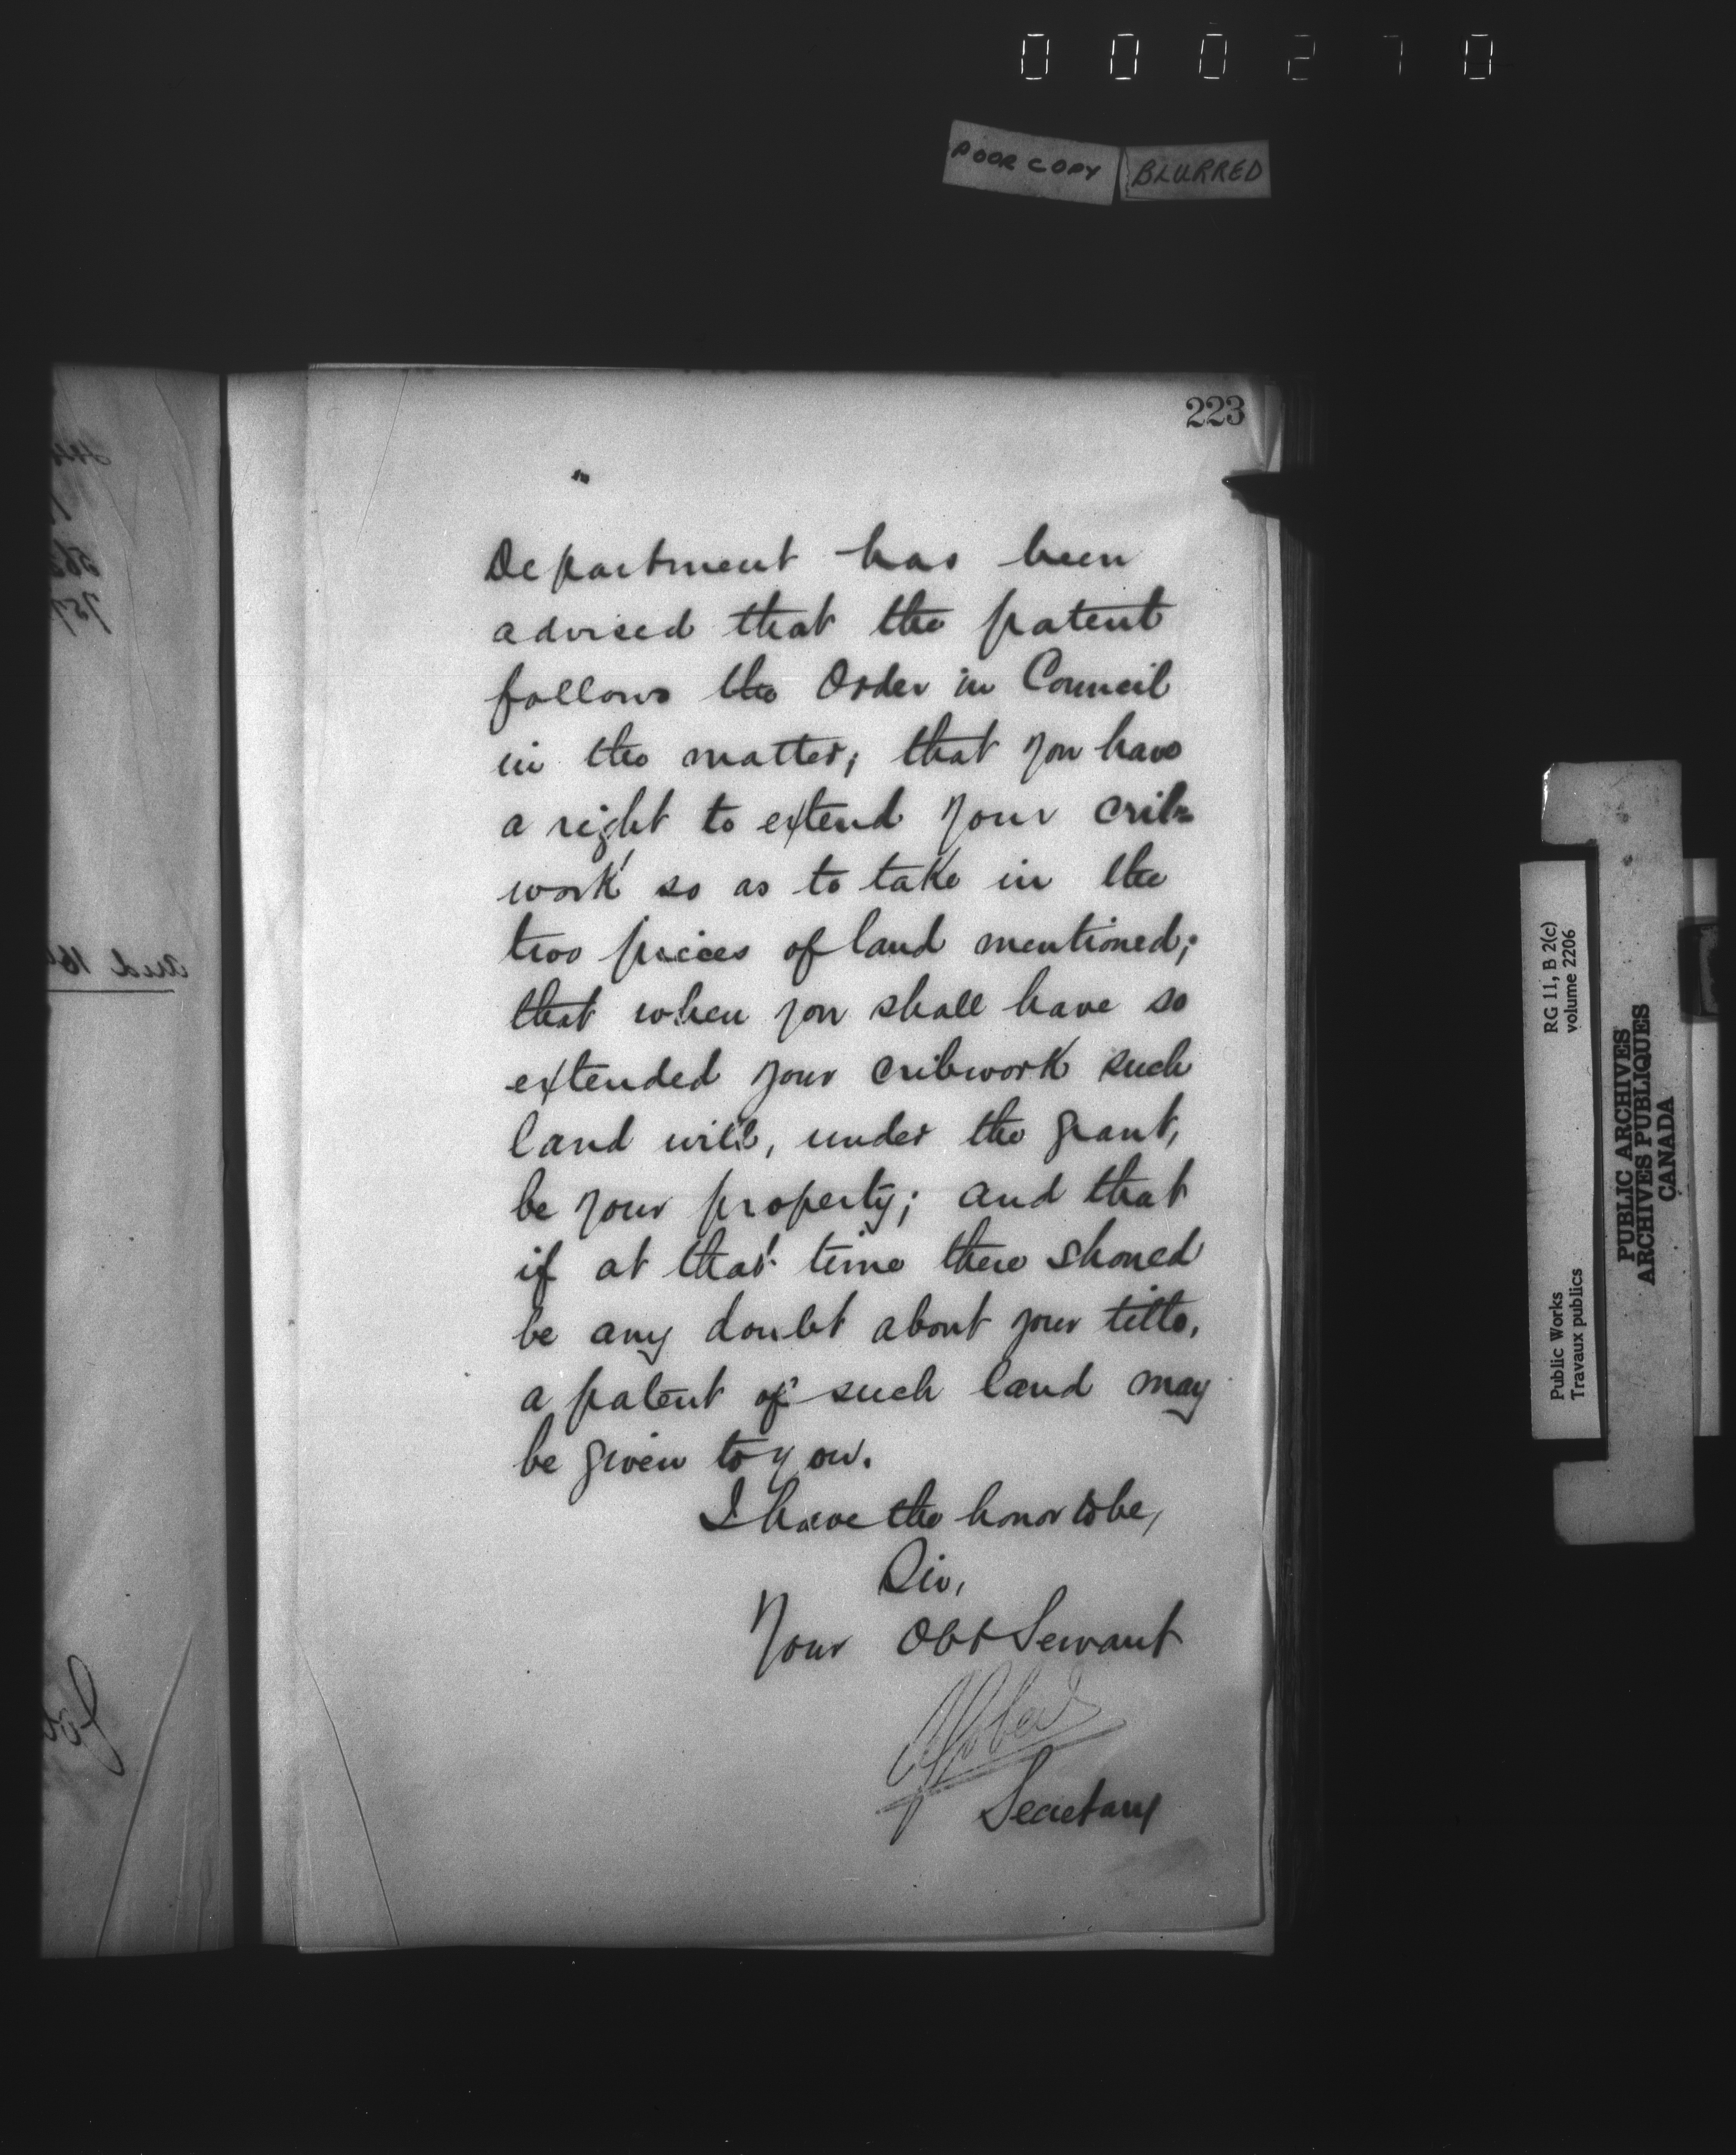 000270
POOR COPY BLURRED
223
Department has been
advised that the patent
follows the Order in Council
in the matter; that you have
a right to extend your crib=
work so as to take in the
two pieces of land mentioned;
that when you shall have so
extended your cribwork such
land will, under the grant,
be your property; and that
if at that time there should
be any doubt about your title,
a patent of such land may
be given to you.
I have the honor to be,
Sir,
Your Obt Servant
Secretary
RG 11, B 2(c)
volume 2206
Public Works
Travaux publics
PUBLIC ARCHIVES
ARCHIVES PUBLIQUES
CANADA